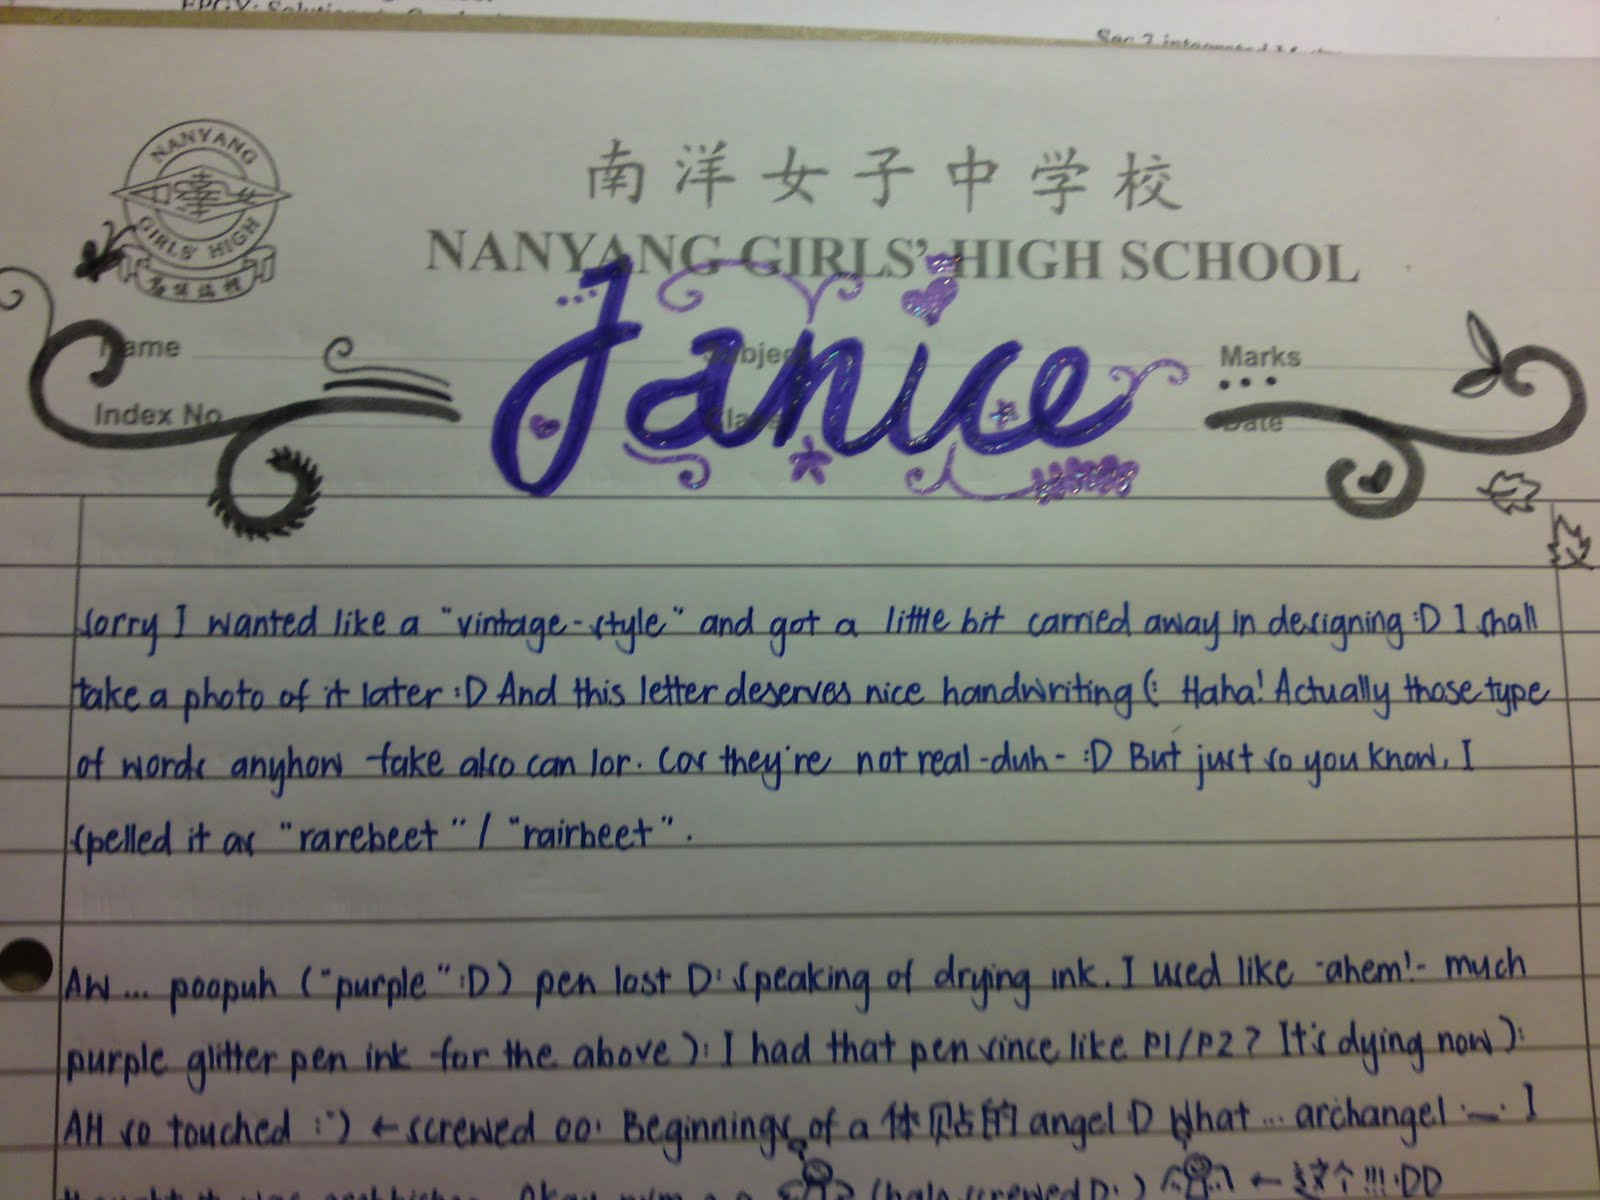 Sec 2 integrated
NANYANG
GIRLS' HIGH
南洋女子中学校
NANYANG GIRLS' HIGH SCHOOL
Name Subject Marks
Index No Class Date
Janice
sorry I wanted like a "vintage-style" and got a little bit carried away in designing :D I shall
take a photo of it later :D And this letter deserves nice handwriting (: Haha! Actually those type
of words anyhow take also can lor. Cos they're not real -duh- :D But just so you know, I
spelled it as "rarebeet" / "rairbeet".
AW ... poopuh ("purple" :D) pen lost D: Speaking of drying ink. I used like -ahem!- much
purple glitter pen ink for the above ): I had that pen since like P1/P2? It's dying now ):
AH so touched :') ← screwed oo: Beginnings of a 体贴的 angel :D What ... archangel ._. I
(haha screwed D: ) ← 这个!!! :DD